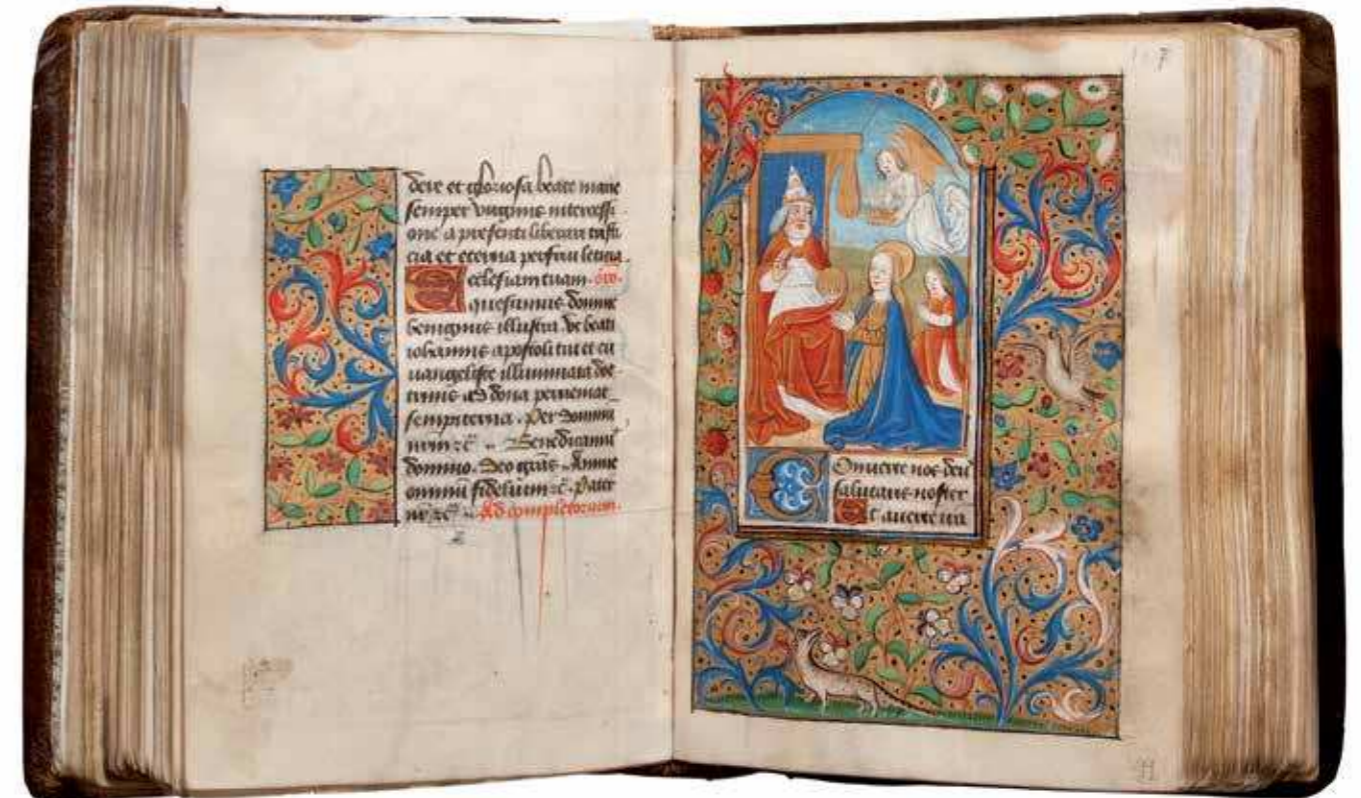 dere et gloriosa beate marie
semper virginis intercessi
one a presenti liberari tristi
cia et eterna perfrui leticia.
Ecclesiam tuam. oro.
quesumus domine
benignus illustra vt beati
iohannis apostoli tui et eu
uangeliste illuminata doc
trinis ad dona perueniat
sempiterna. Per dominu
nrum zc. Benedicamus
domino. Deo gras. Anime
omniu fideliu zc. Pater
nr zc. Ad completorium.
Conuerte nos deus
salutaris noster
Et auerte ira